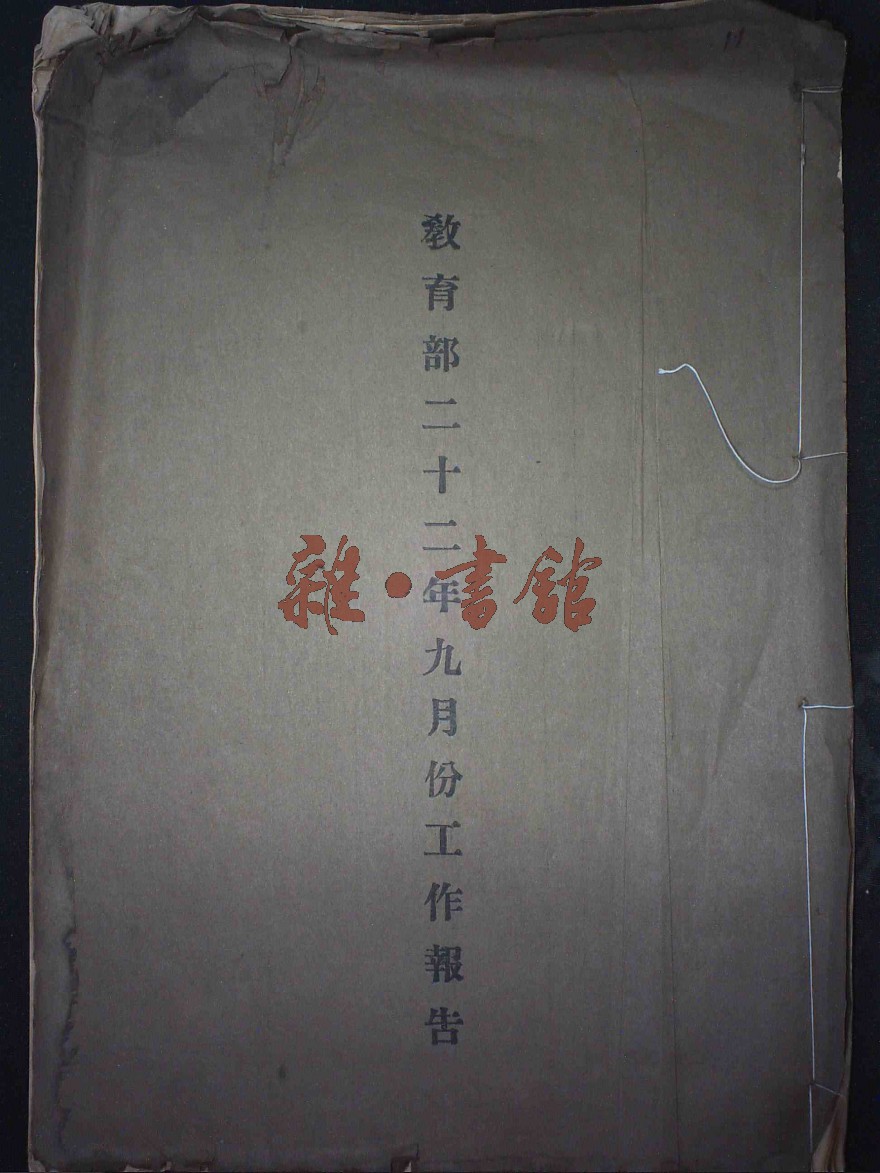 教育部二十二年九月份工作報告
雜·書館
11